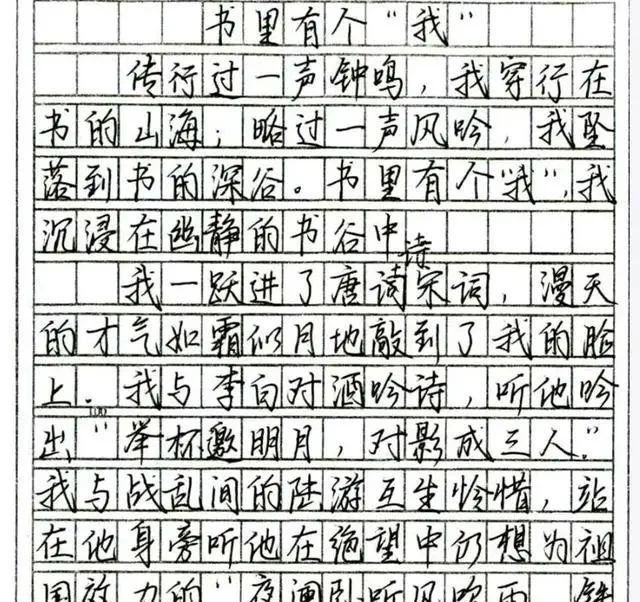 书里有个“我”
传行过一声钟鸣，我穿行在
书的山海；略过一声风吟，我坠
落到书的深谷。书里有个“我”，我
沉浸在幽静的书谷中
诗
我一跃进了唐诗宋词，漫天
的才气如霜似月地敲到了我的脸
上．我与李白对酒吟诗，听他吟
100
出“举杯邀明月，对影成三人．”
我与战乱间的陆游互生怜惜，站
在他身旁听他在绝望中仍想为祖
国效力的“夜阑卧听风吹雨，铁